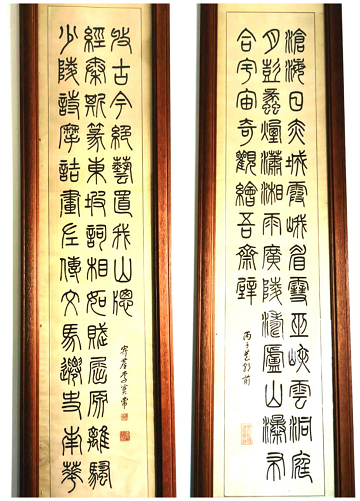 滄海日赤城霞峨眉雪巫峽雲洞庭
月彭蠡煙瀟湘雨廣陵濤廬山瀑布
合宇宙奇觀繪吾齋壁
丙子
少陵詩摩詰畫左傳文馬遷史南華
經秦斯篆東坡詞相如賦屈原離騷
收古今絕藝置我山窗